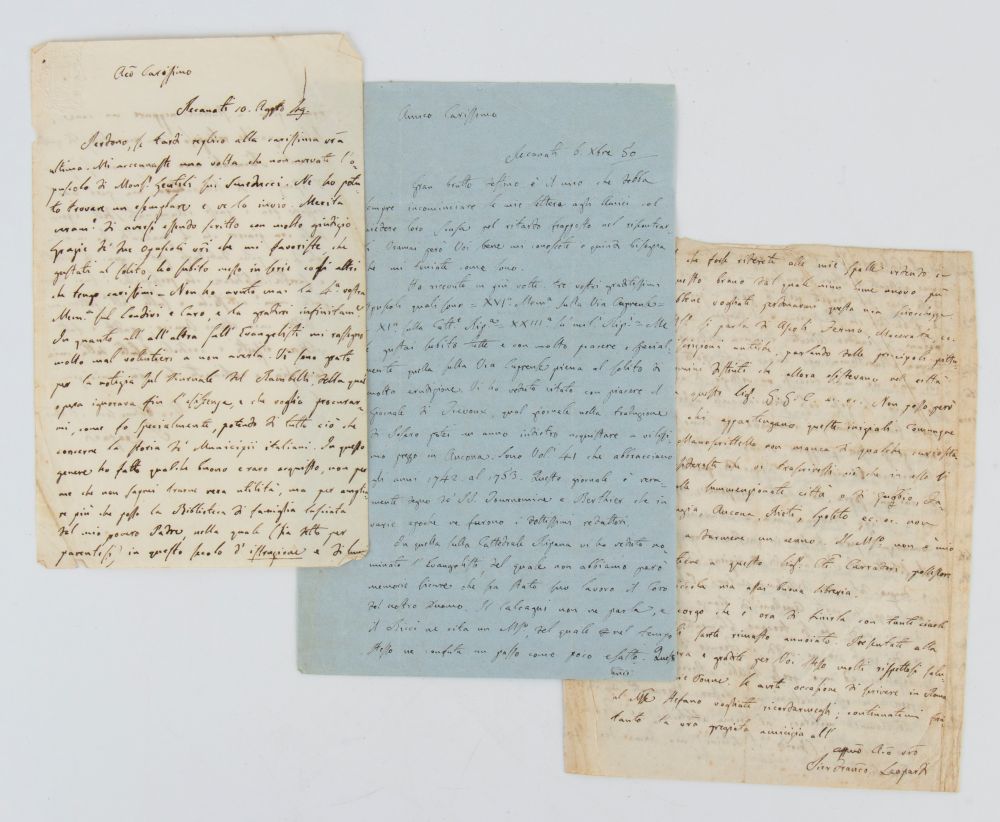 Aco Carissimo
Recanati 10. Agosto
Perdono, se tardi replico alla carissima vra
ultima. Mi accennaste una volta che non avevate l'o
puscolo di Mons. Gentili sui Smeducci. Ne ho potu
to trovare un esemplare e ve lo invio. Merita
di aversi essendo scritto con molto giudizio.
Grazie di due opuscoli vri che mi favoriste che
gustati al solito, ho subito messo in serie cogli altri
da tempo carissimi = Non ho avuto mai la 4a vostra
Mema sul Londini e Caro, e la gradirei infinitamte
In quanto all'altra sull'Evangelisti mi rassegno
molto mal volentieri a non averla. Vi sono grato
per la notizia sul Giornale del Rambelli della qual
opera ignorava fin l'esistenza, e che voglio procurar
mi, come fo specialmente, potendo di tutti ciò che
concerne la storia di Municipii italiani. In questo
genere ho fatto qualche buono e raro acquisto, non per
me che non saprei trarne vera utilità, ma per amplia
re più che posso la Biblioteca di famiglia lasciata
dal mio povero Padre, nella quale (sia detto per
parentesi) in questo secolo d'istruzione e di lumi
Amico Carissimo
Recanati 6. Xbre 50
Gran brutto destino è il mio che debba
sempre incominciare le mie lettere agli Amici col
chiedere loro scusa del ritardo frapposto nel riscontrar
li. Oramai però Voi bene mi conoscete e quindi bisogna
che mi teniate come sono.
Ho ricevuto in più volte tre vostri graditissimi
opuscoli quali sono = XVIa Mema sulla Via Cuprense =
XIa sulla Cattle Ripna = XXIIIa = Me
li gustai subito tutti e con molto piacere e special
mente quella sulla Via Cuprense piena al solito di
molta erudizione. Vi ho veduto citato con piacere il
Giornale di Trevoux qual giornale nella traduzione
di Pesaro potei un anno indietro acquistare a vilissi
mo prezzo in Ancona. Sono Vol. 41 che abbracciano
gli anni 1742 al 1753. Questo giornale è vera
mente degno dei Tournemine e Berthier che in
varie epoche ne furono i dottissimi redattori.
In quella sulla Cattedrale Ripana vi ho veduto no
minato l'Evangelisti, del quale non abbiamo però
memorie sicure che sia stato suo lavoro il Coro
del nostro Duomo. Il Calcagni non ne parla, e
il Ricci ne cita un Ms. del quale nel tempo
stesso ne confuta un passo come poco esatto. Questi
che forse riderete alle mie spalle vedendo in
questo brano del qual niun lume nuovo può
vogliate perdonarmi questa mia
Si parla di Ascoli Fermo, Macerata, ec.
iscrizioni antiche, parlando delle principali pittu
che allora esistevano nel città
questi Sig. G. G. C. ec. ec. Non posso però
che appartengano queste iniziali. Comunque
Manoscritto non manca di qualche curiosità
desideraste che vi trascrivessi ciò che in esso si
summenzionate città o di Gubbio, Pe
rugia, Ancona, Rieti, Spoleto ec. ec. non
a darmene un cenno. Il Ms. non è mio
bene a questo Sig. Carradori possessor
piccola ma assai buona libreria.
corgo che è ora di finirla con tante ciarle
sarete rimasto annoiato. Presentate alla
e gradite per Voi stesso molti rispettosi salu
Donne. Se avete occasione di scrivere in Roma
al Mse Stefano vogliate ricordarmegli; continuatemi frat
tanto la vra pregiata amicizia all'
affmo Aco vro
Pierfranco Leopardi